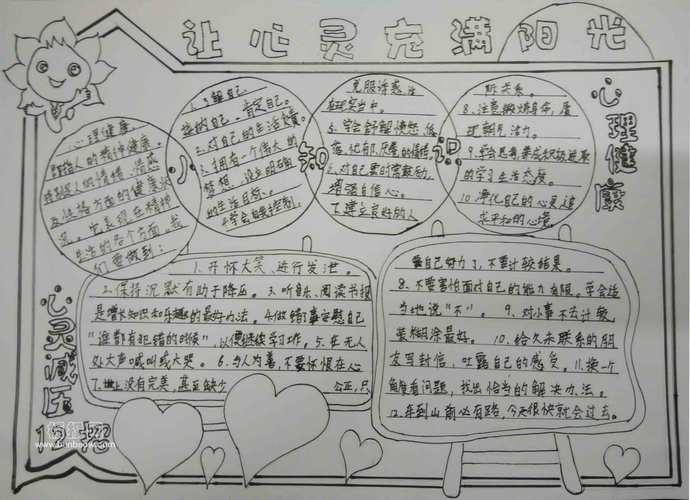 让心灵充满阳光
心理健康
小知识
心理健康,
是指人的精神健康,
人的情绪、情感
及性格方面的健康状
况。它表现在精神
生活的各个方面,我
们要做到:
1.了解自己
接纳自己,肯定自己。
2.对自己的生活负责。
3.拥有一个伟大的
梦想,设立明确
的生活目标。
4.学会自我控制,
克服诱惑活
在现实当中。
5.学会舒解愤怒、低
落、忧郁、厌暴的情绪。
6.对自己常常鼓励
增强自信心。
7.建立良好的人
际关系。
8.注意锻炼身体,展
现朝气活力。
9.学会思考,养成积极进取
的学习生活态度。
10.净化自己的心灵,追
求平和的心境。
心灵减压
1.开怀大笑、进行发泄。
2.保持沉默有助于降压。3.听音乐、阅读书报
是增长知识和乐趣的最好办法。4.做错了事安慰自己
“谁都有犯错的时候”,以便继续学习工作。5.在无人
处大声喊叫或大哭。6.与人为善,不要怀恨在心
7.世上没有完美,甚至缺少 公正,只
要自己努力了,不要计较结果。
8.不要害怕面对自己的能力有限,学会适
当地说“不”。9.对小事不去计较,
装糊涂最好。10.给久未联系的朋
友写封信,吐露自己的感受。11.换一
角度看问题,找出恰当的解决办法。
12.车到山前必有路,今天很快就会过去。